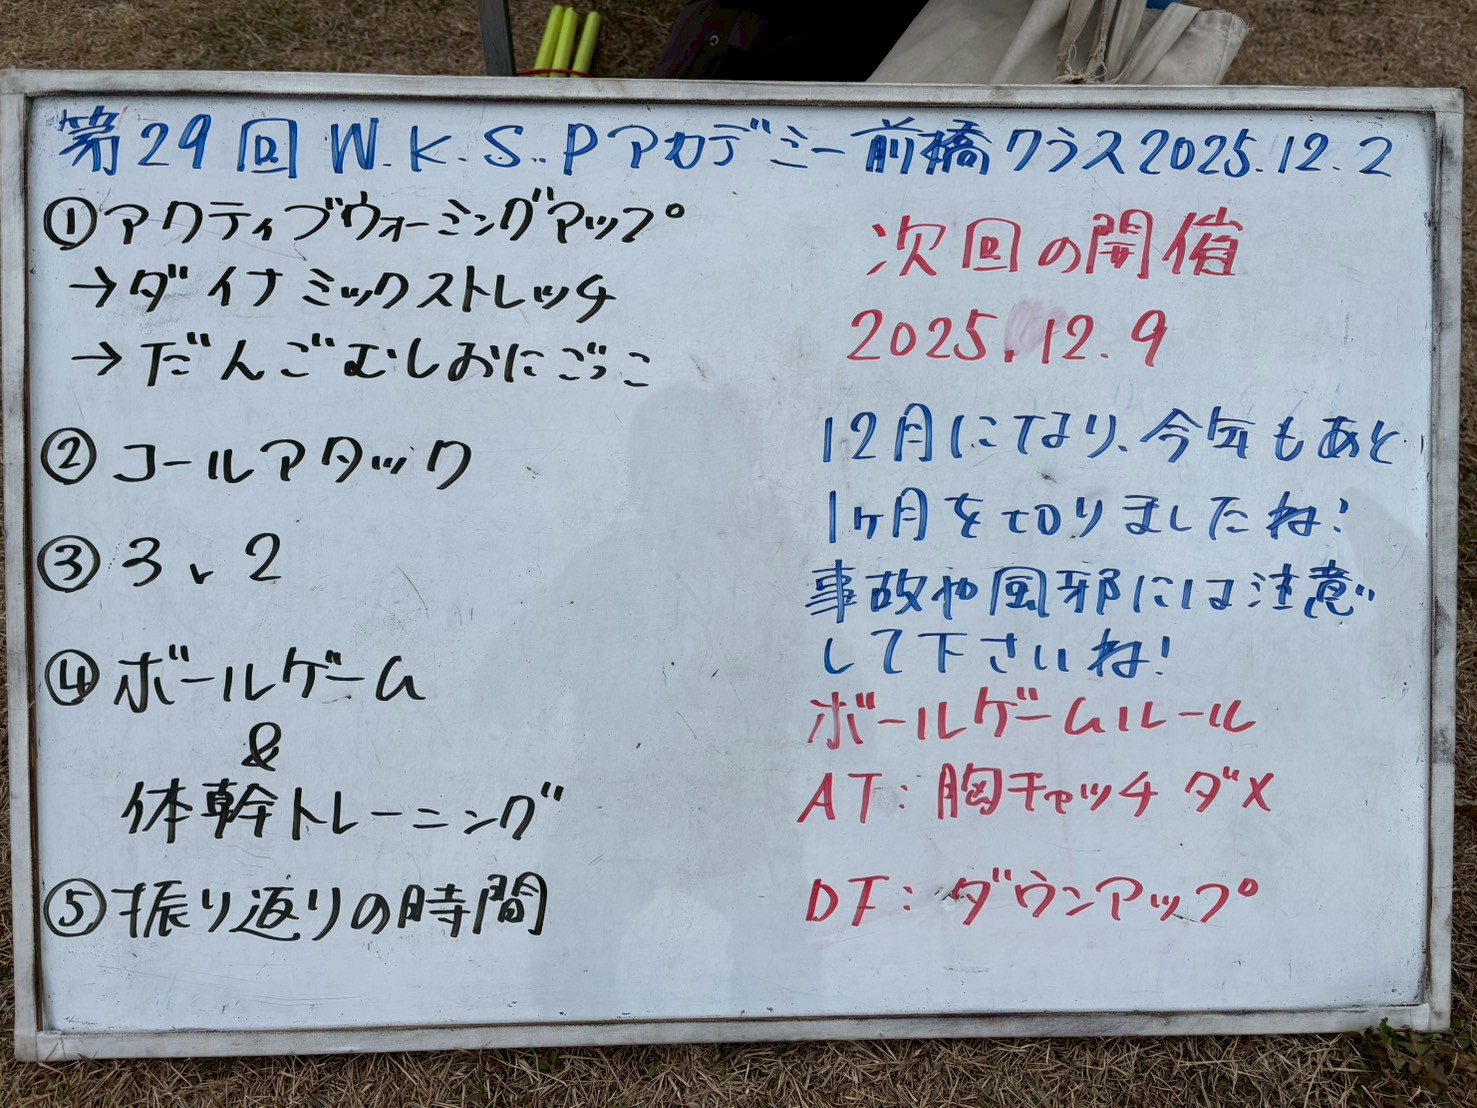 第29回 W.K.S.Pアカデミー前橋クラス2025.12.2
①アクティブウォーミングアップ
→ダイナミックストレッチ
→だんごむしおにごっこ
②コールアタック
③3v2
④ボールゲーム
&
体幹トレーニング
⑤振り返りの時間
次回の開催
2025.12.9
12月になり、今年もあと
1ヶ月を切りましたね!
事故や風邪には注意
して下さいね!
ボールゲームルール
AT:胸キャッチダメ
DF:ダウンアップ